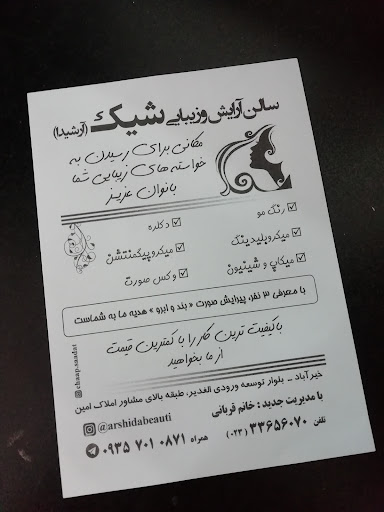 سالن آرایش و زیبایی شیک (آرشیدا)
مکانی برای رسیدن به
خواسته های زیبایی شما
بانوان عزیز
رنگ مو
دکلره
میکروبلیدینگ
میکروپیگمنتشن
میکاپ و شینیون
وکس صورت
با معرفی ۳ نفر، پیرایش صورت « بند و ابرو » هدیه ما به شماست
باکیفیت ترین کار را با کمترین قیمت
از ما بخواهید
خیرآباد - بلوار توسعه ورودی الغدیر، طبقه بالای مشاور املاک امین
با مدیریت جدید : خانم قربانی
@arshidabeauti
تلفن ۳۳۶۵۶۰۷۰ (۰۲۳)
همراه ۰۹۳۵ ۷۰۱ ۰۸۷۱
chaap.saadat